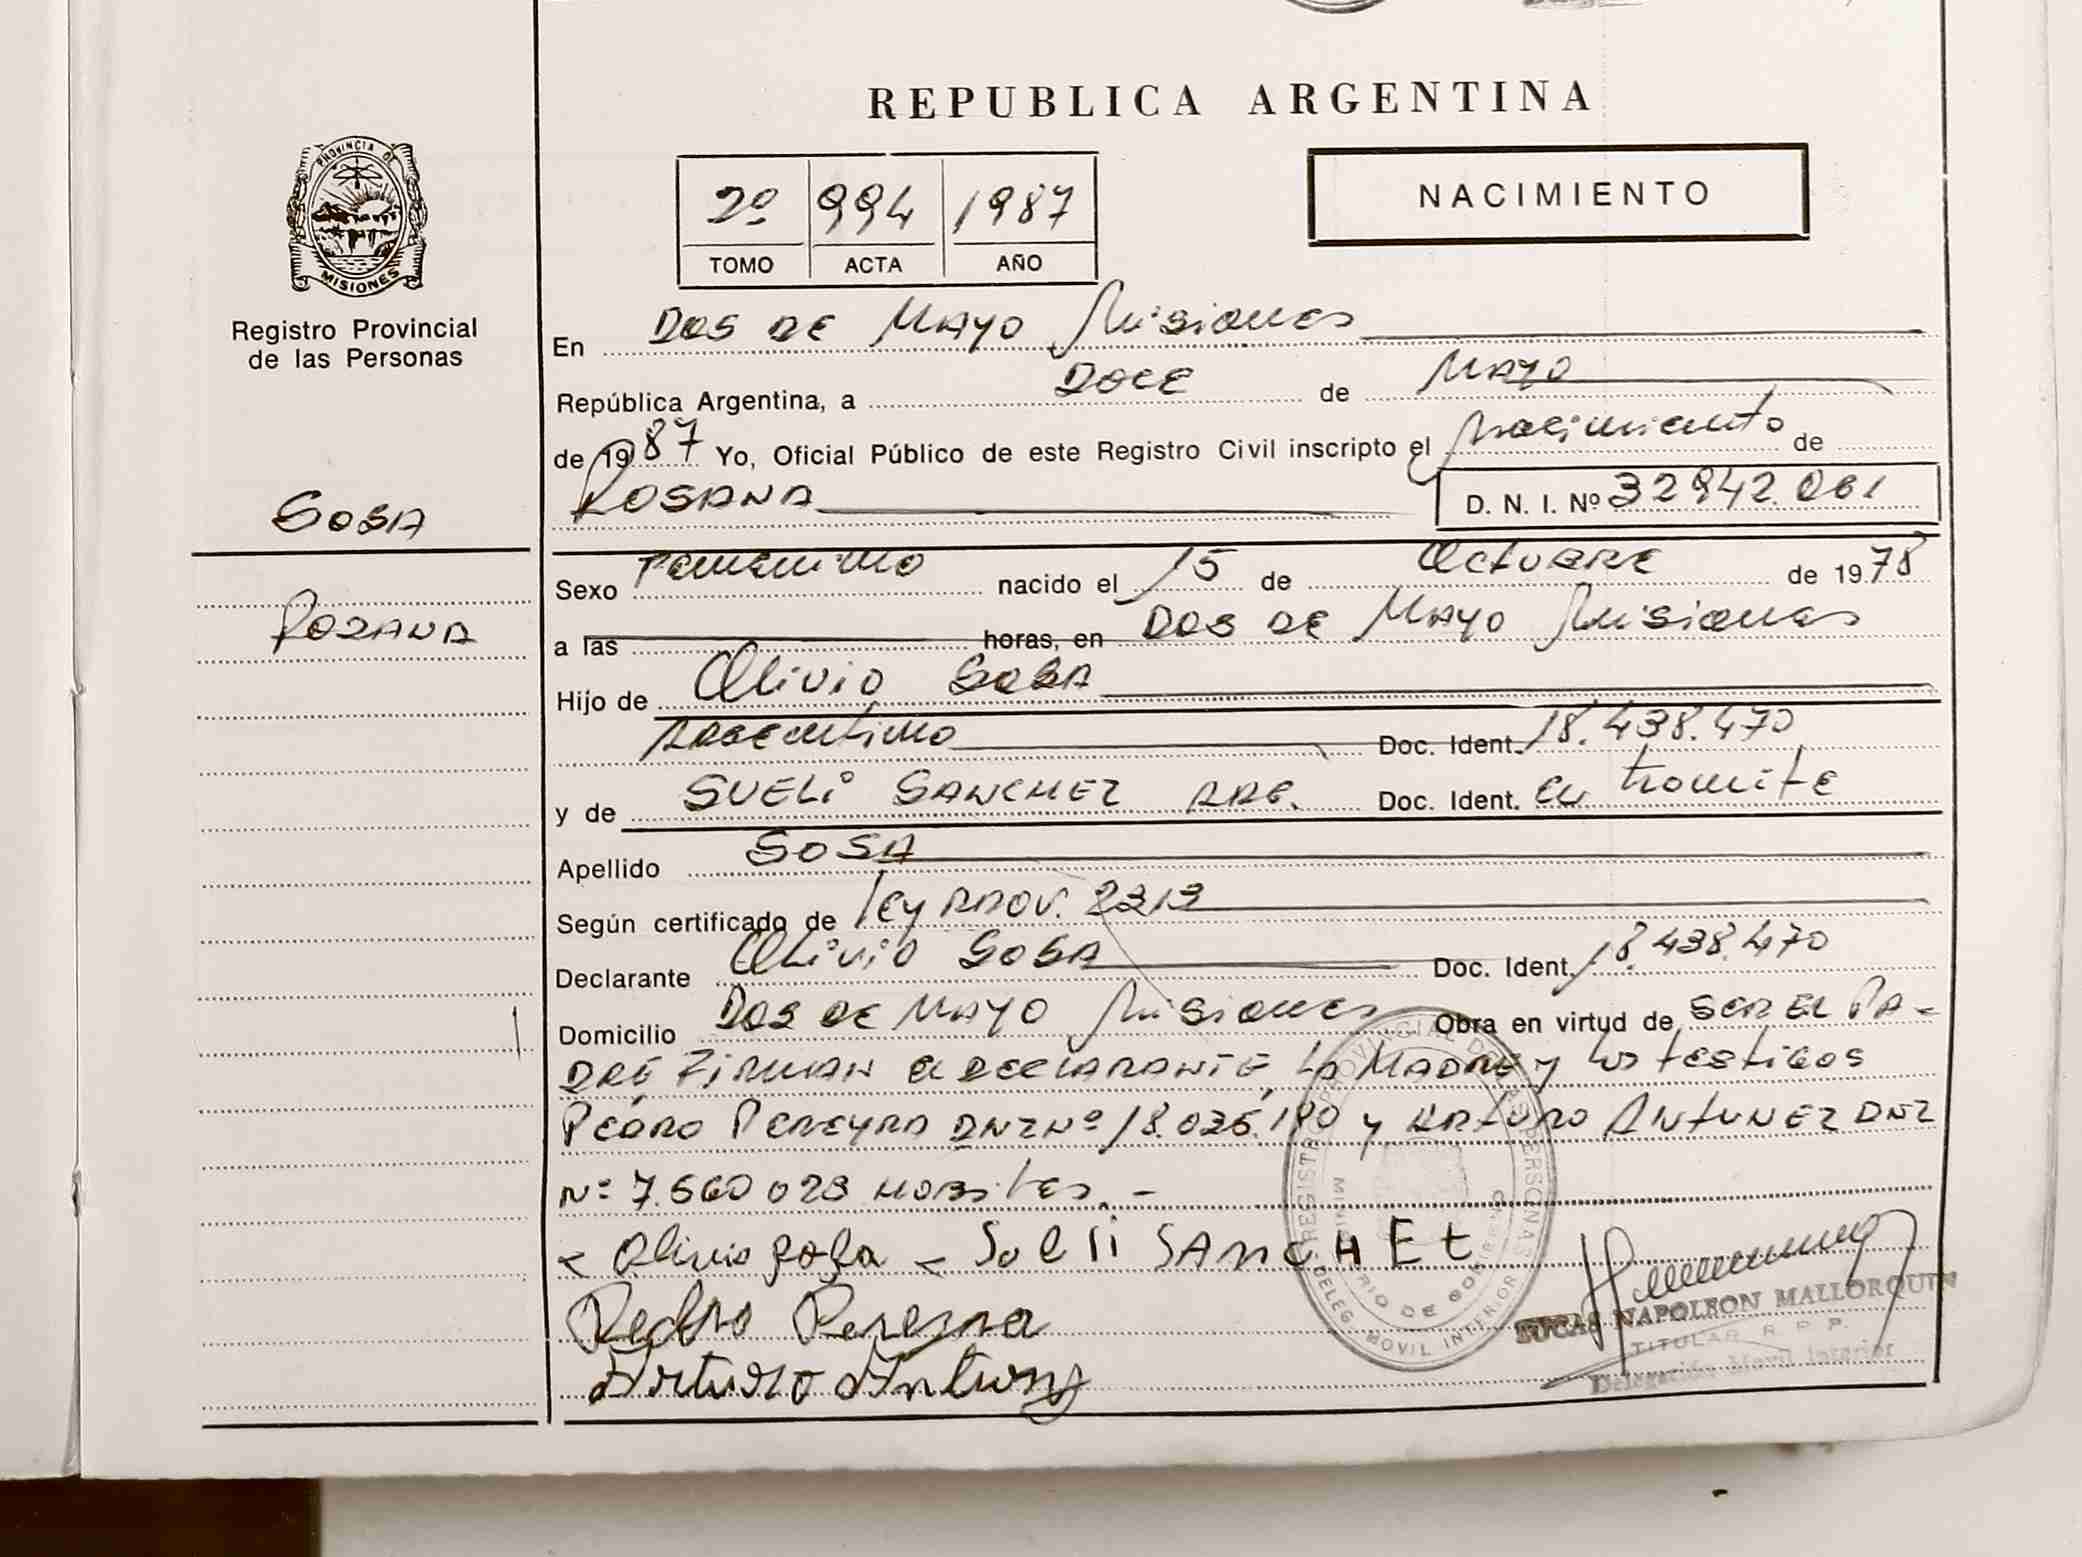 REPUBLICA ARGENTINA
PROVINCIA DE
MISIONES
Registro Provincial
de las Personas
2º 994 1987
TOMO ACTA AÑO
NACIMIENTO
En DOS DE MAYO Misiones
República Argentina, a DOCE de MAYO
de 1987 Yo, Oficial Público de este Registro Civil inscripto el Nacimiento de
ROSANA
D. N. I. Nº 32942.061
SOSA
ROSANA
Sexo Femenino nacido el 15 de Octubre de 1978
a las horas, en DOS DE MAYO Misiones
Hijo de Olivio SOSA
Argentino Doc. Ident. 18.438.470
y de SUELI SANCHEZ ARG. Doc. Ident. en tramite
Apellido SOSA
Según certificado de ley PROV. 2313
Declarante Olivio SOSA Doc. Ident. 18.438.470
Domicilio DOS DE MAYO Misiones Obra en virtud de SER EL PA-
DRE FIRMAN el DECLARANTE, LA MADRE y los testigos
PEDRO PEREYRA DNI Nº 18.026.190 y ARTURO ANTUNEZ DNI
Nº 7.560 028 HABILES. -
Olivio sosa - Soeli SAnCHEz
Pedro Pereyra
Arturo Antunez
REGISTRO PROVINCIAL DE LAS PERSONAS
MINISTERIO DE GOBIERNO
DELEG. MOVIL INTERIOR
LUCAS NAPOLEON MALLORQUIN
TITULAR R. P. P.
Delegación Movil Interior